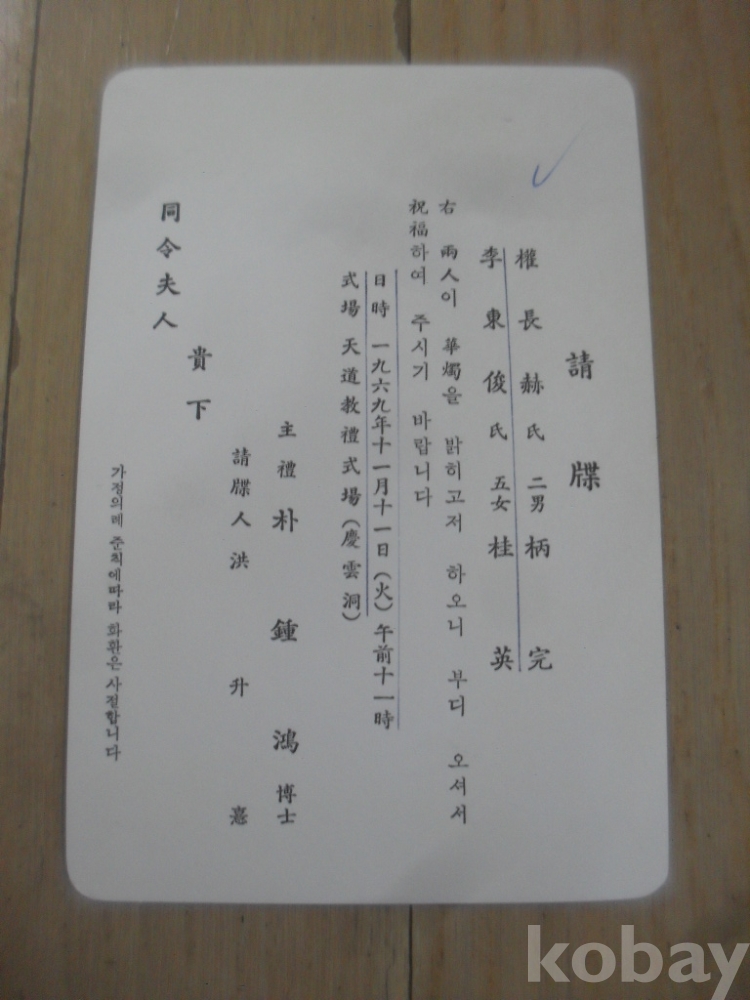 請牒
權長赫氏 二男 柄完
李東俊氏 五女 桂英
右 兩人이 華燭을 밝히고저 하오니 부디 오셔서
祝福하여 주시기 바랍니다
日時 一九六九年十一月十一日(火)午前十一時
式場 天道敎禮式場(慶雲洞)
主禮 朴鍾鴻 博士
請牒人 洪升憙
貴下
同令夫人
가정의례 준칙에따라 화환은 사절합니다
kobay